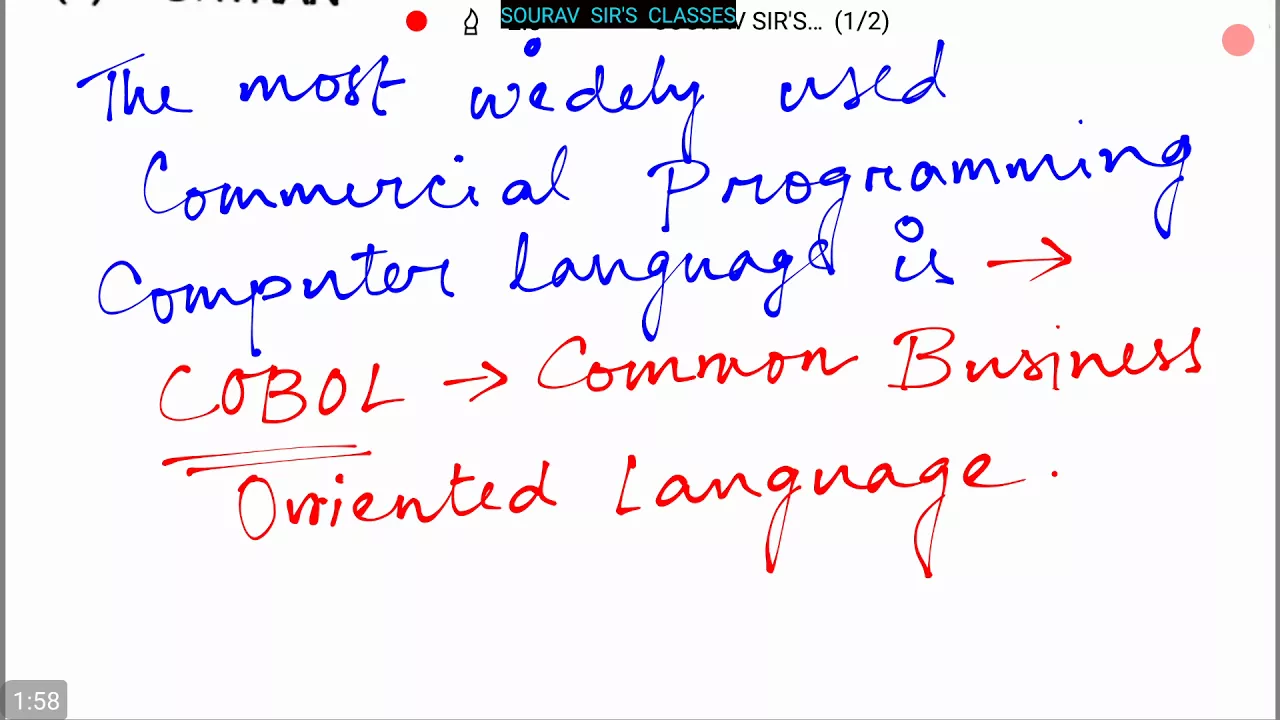 SOURAV SIR'S CLASSES
SIR'S... (1/2)
The most widely used
Commercial Programming
Computer language is →
COBOL → Common Business
Oriented Language.
1:58